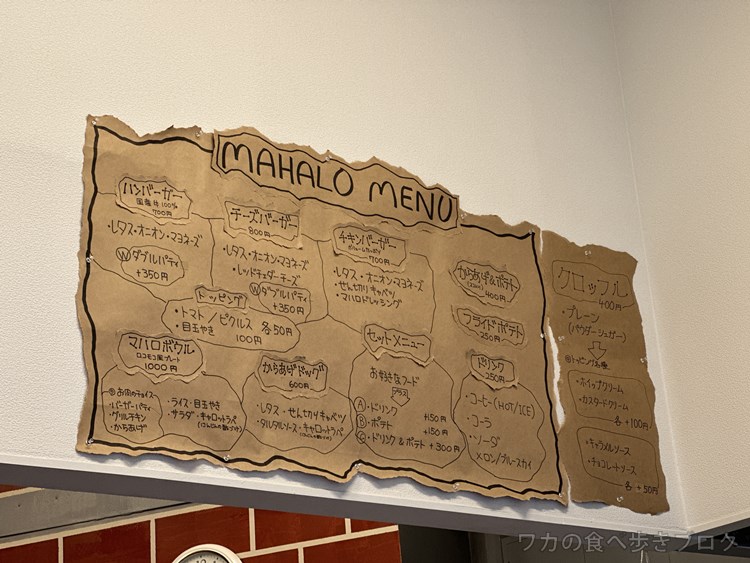 MAHALO MENU
ハンバーガー
国産牛100%
700円
・レタス・オニオン・マヨネーズ
Wダブルパティ
+350円
チーズバーガー
800円
・レタス・オニオン・マヨネーズ
・レッドチェダーチーズ
Wダブルパティ
+350円
チキンバーガー
700円
・レタス・オニオン・マヨネーズ
・せん切りキャベツ
・マハロドレッシング
からあげ&ポテト
400円
フライドポテト
250円
トッピング
・トマト/ピクルス 各50円
・目玉やき 100円
マハロボウル
ロコモコ風プレート
1000円
※お肉のチョイス
・バーガーパティ
・グリルチキン
・からあげ
・ライス・目玉やき
・サラダ・キャロットラペ
(にんじんの酢づけ)
からあげドッグ
600円
・レタス・せん切りキャベツ
・タルタルソース・キャロットラペ
(にんじんの酢づけ)
セットメニュー
お好きなフード
プラス
A・ドリンク +150円
B・ポテト +150円
C・ドリンク&ポテト +300円
ドリンク
250円
・コーヒー(HOT/ICE)
・コーラ
・ソーダ
メロン/ブルースカイ
クロッフル
400円
・プレーン
(パウダーシュガー)
・ホイップクリーム
・カスタードクリーム
各+100円
・キャラメルソース
・チョコレートソース
各+50円
ワカの食べ歩きブログ